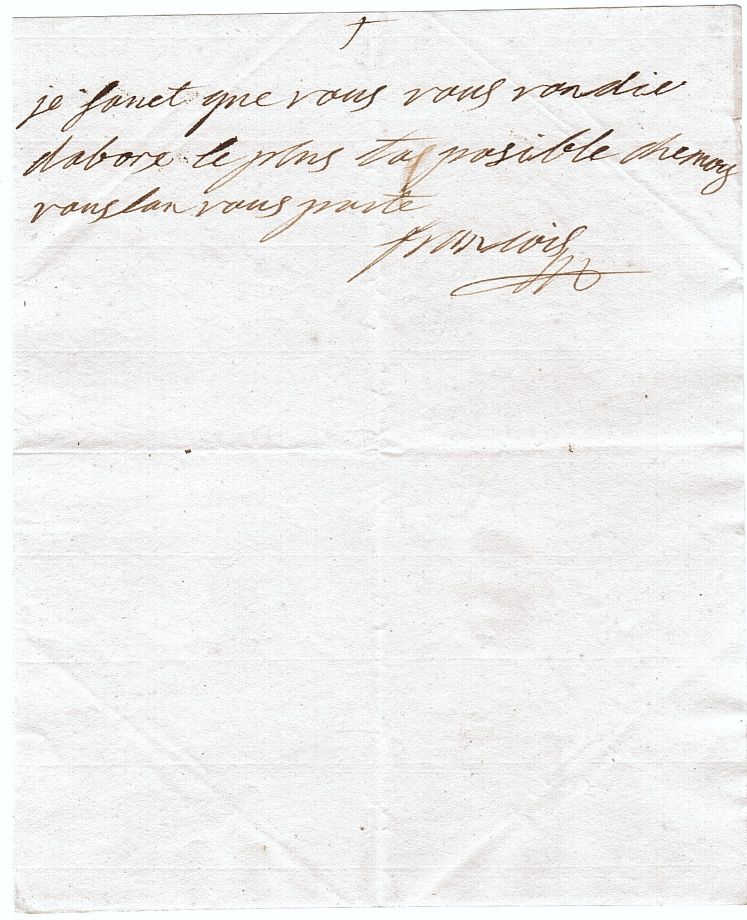 †
je souet que vous vous randie
dabore le plus tas posible chemoy
vous lan vous porte
francois